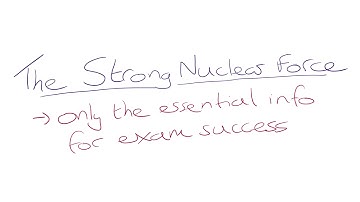 The Strong Nuclear Force
→ only the essential info
for exam success